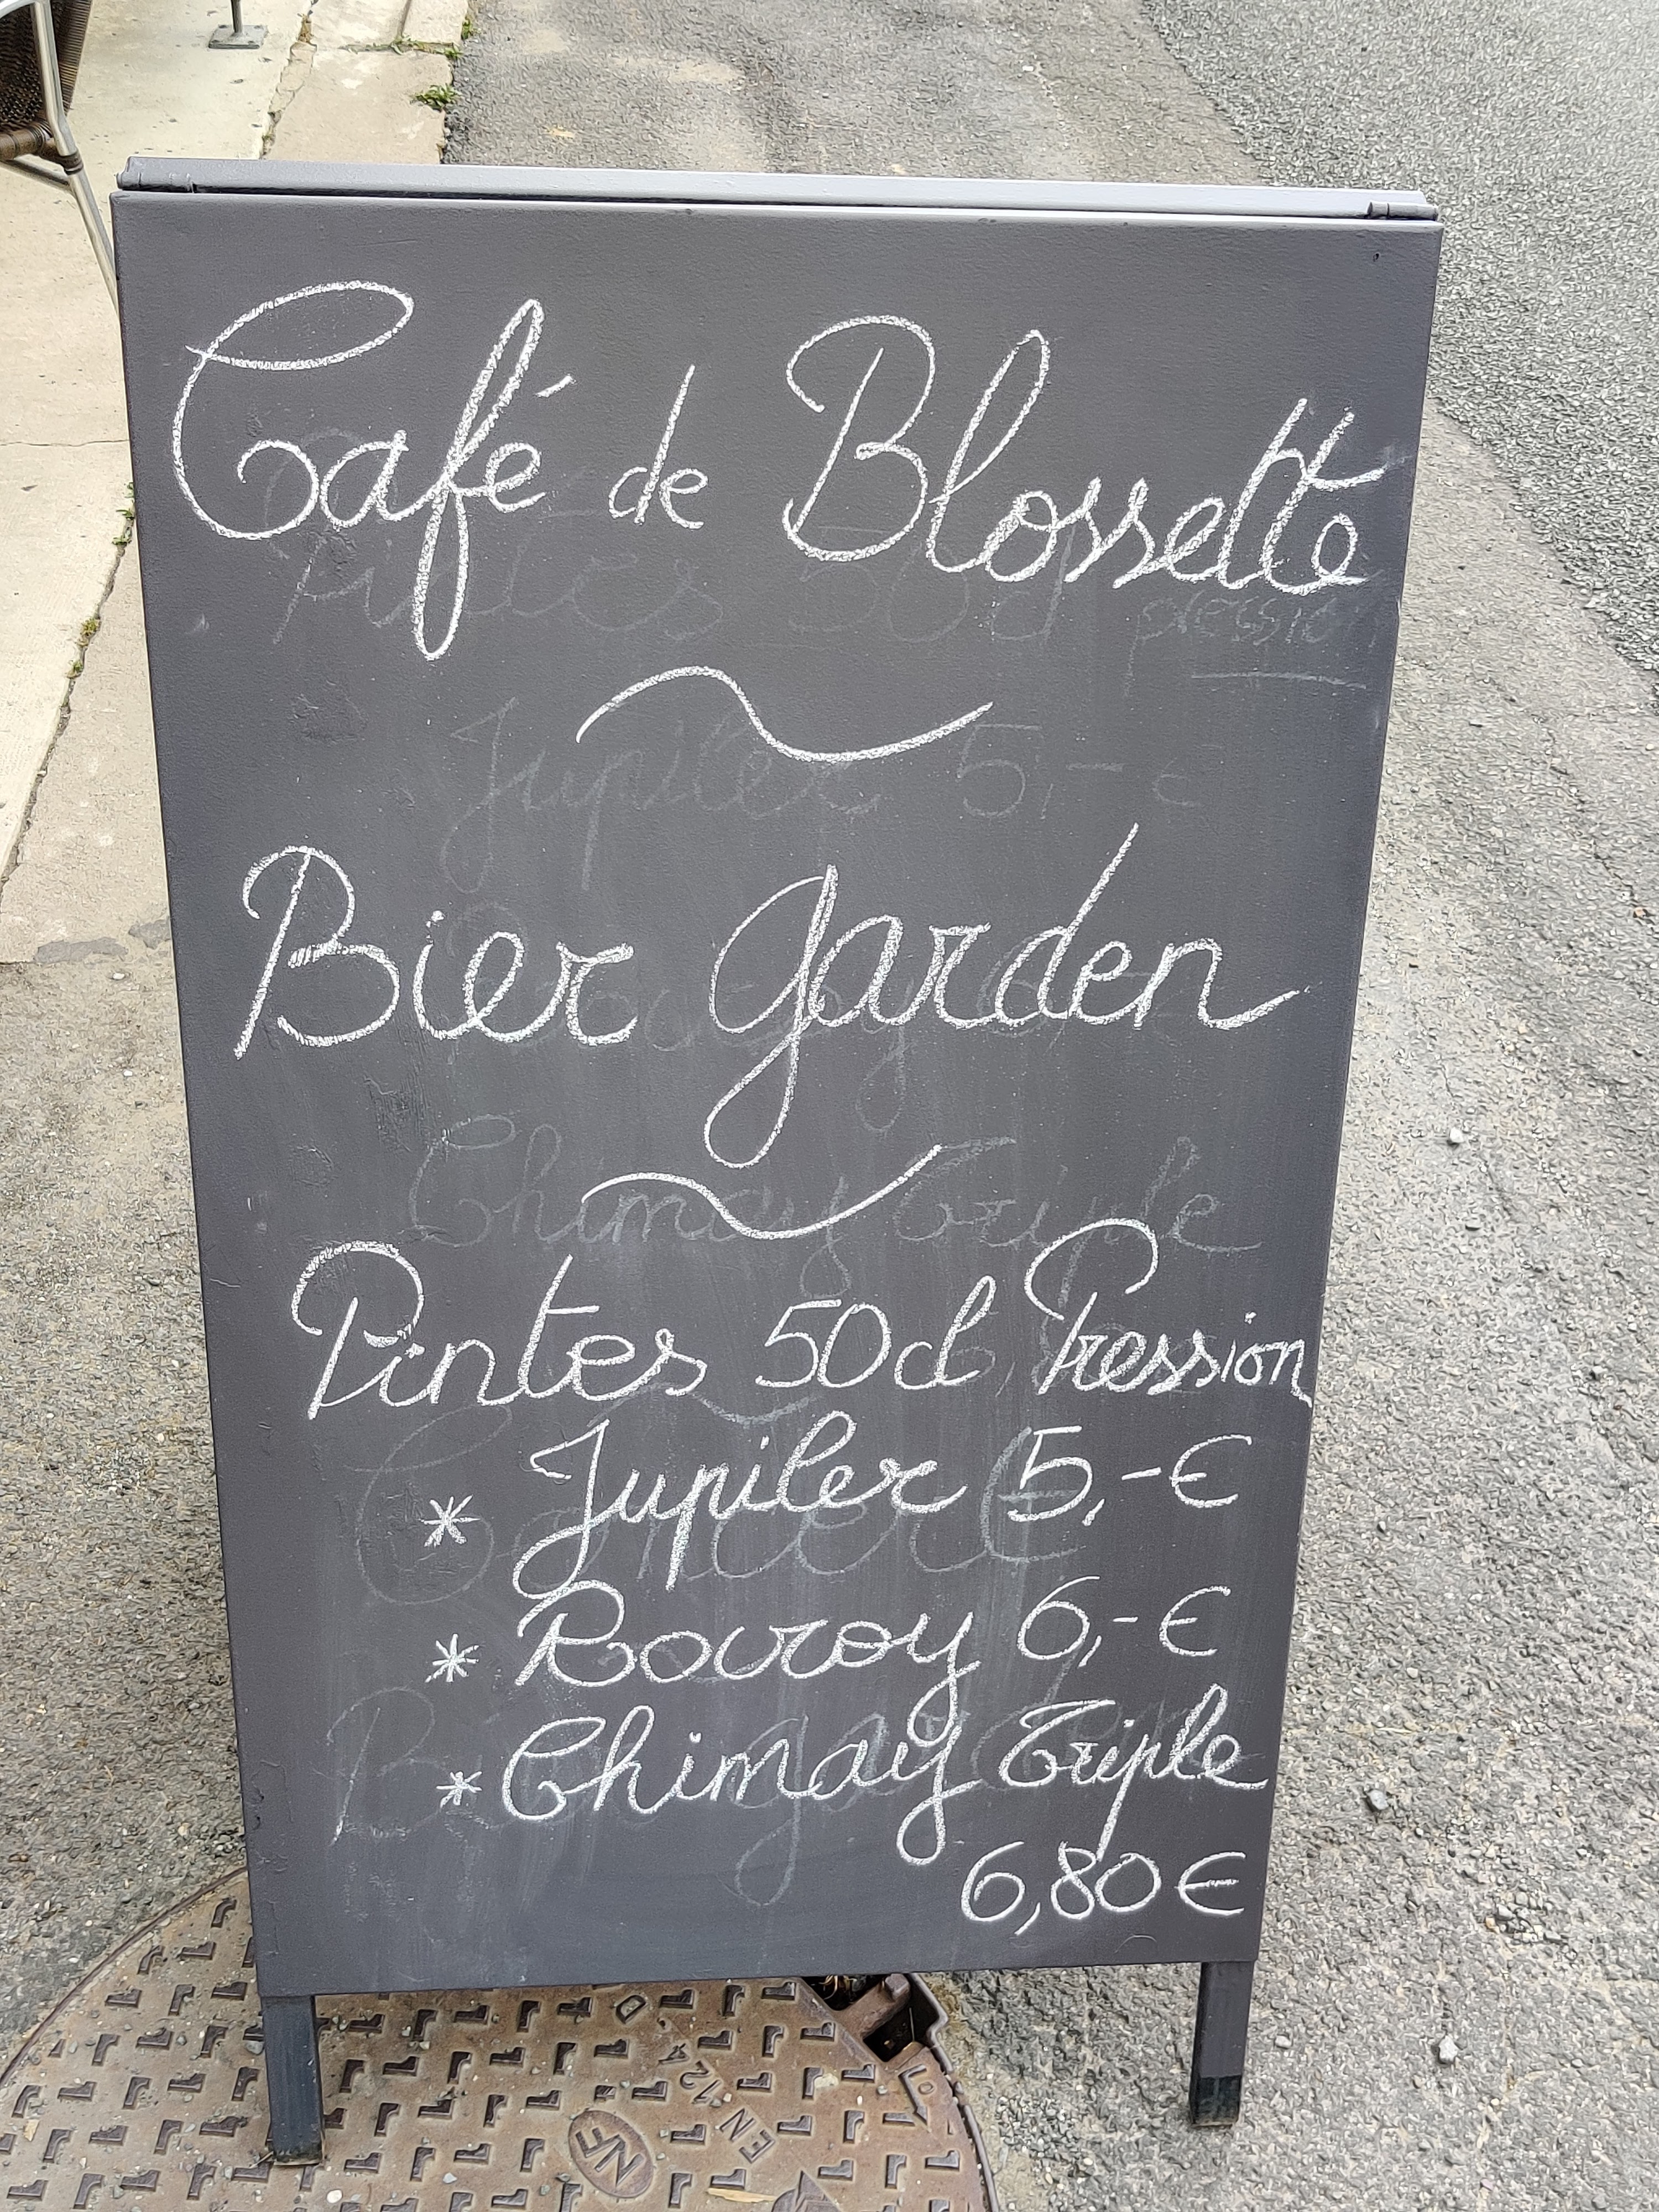 Café de Blossette
Bier Garden
Pintes 50cl Pression
* Jupiler 5,-€
* Rouroy 6,-€
* Chimay Triple
6,80€
NF
EN 124